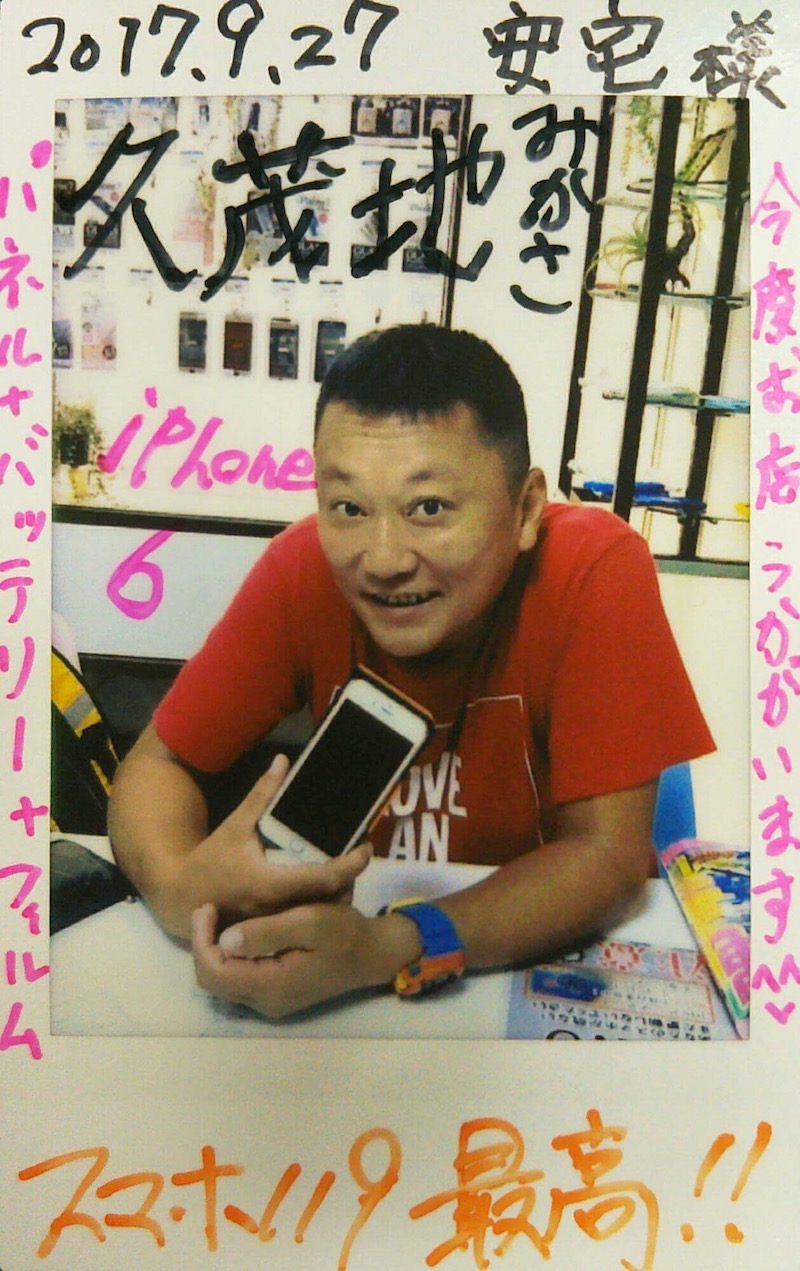 2017.9.27 安宅様
久茂地
みかさ
iPhone
6
パネル+バッテリー+フィルム
今度お店うかがいます^^♡
LOVE
AN
スマホ119 最高!!